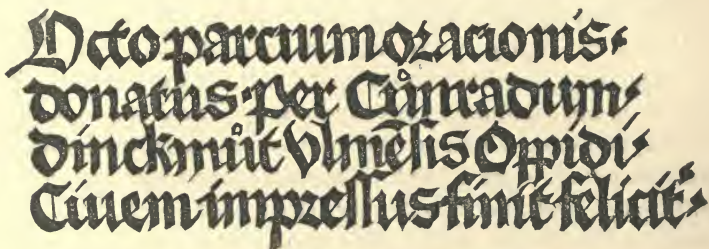 Octo parcium oracionis·
donatus·Per Cůnradum·
dinckmůt Vlmēsis Oppidi·
Ciuem impressus finit felicit᷑·